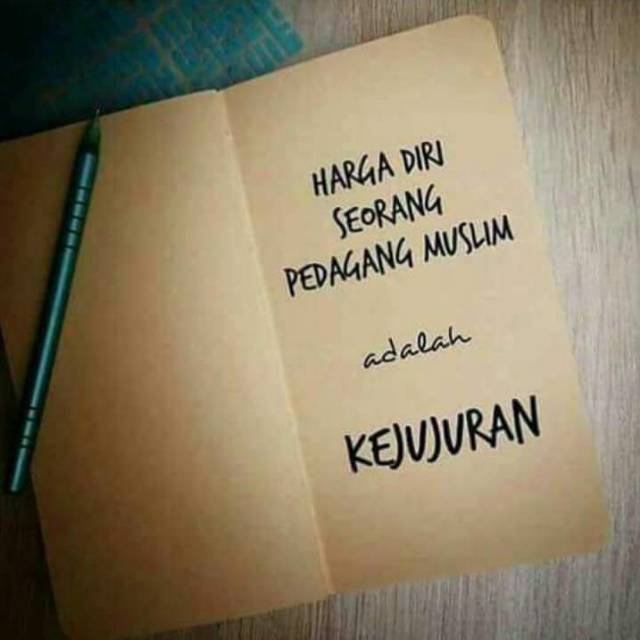 HARGA DIRI
SEORANG
PEDAGANG MUSLIM
adalah
KEJUJURAN